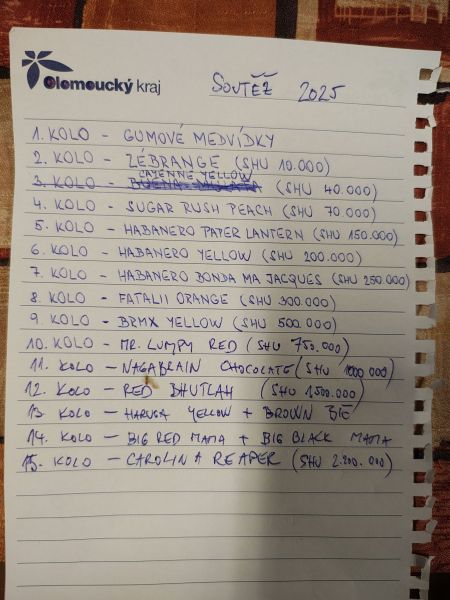 Olomoucký kraj
SOUTĚŽ 2025
1. KOLO - GUMOVÉ MEDVÍDKY
2. KOLO - ZÉBRANGE (SHU 10.000)
CAYENNE YELLOW
3. KOLO - BUENA MULATA (SHU 40.000)
4. KOLO - SUGAR RUSH PEACH (SHU 70.000)
5. KOLO - HABANERO PAPER LANTERN (SHU 150.000)
6. KOLO - HABANERO YELLOW (SHU 200.000)
7. KOLO - HABANERO BONDA MA JACQUES (SHU 250.000)
8. KOLO - FATALII ORANGE (SHU 300.000)
9. KOLO - BRMX YELLOW (SHU 500.000)
10. KOLO - MR. LUMPY RED (SHU 750.000)
11. KOLO - NAGABRAIN CHOCOLATE (SHU 1000000)
12. KOLO - RED BHUTLAH (SHU 1.500.000)
13. KOLO - HARUSA YELLOW + BROWN
14. KOLO - BIG RED MAMA + BIG BLACK MAMA
15. KOLO - CAROLINA REAPER (SHU 2.200.000)